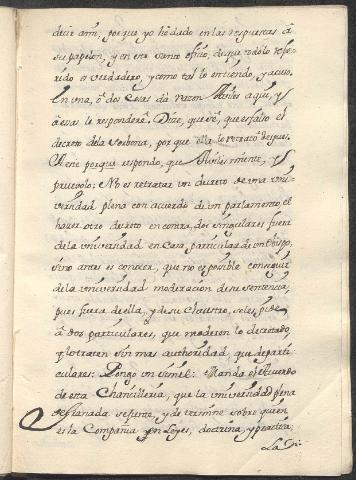 decir amí, porque yo hè dado en las respuestas à
su papelon, y en este siento esto, de que todo lo refe-
rido es verdadero, y como tal lo entiendo, y acuso.
En una, ò dos cosas dà razon Aviles aqui, y
à essas le responderè. Dize, que es falso el
decreto de la Sorbona, porque ella lo retratò despues.
A este porque respondo, que Aviles miente, y
pruevolo: No es retratar un decreto de una uni-
versidad plena con acuerdo de un parlamento, el
hacer otro decreto en contra, dos singulares fuera
de la universidad en casa particular de un Obispo,
sino antes es conocer, que no es posible conseguir
de la universidad moderacion de su sentencia,
pues fuera de ella, y de su Claustro, se les pide
à dos particulares, que moderen lo decretado,
y lo traten sin mas authoridad, que de parti-
culares: Pongo un simil: Manda el Acuerdo
de esta Chancilleria, que la universidad plena
de Granada se junte, y determine sobre quien
es la Compañia en Leyes, doctrina, y practica;